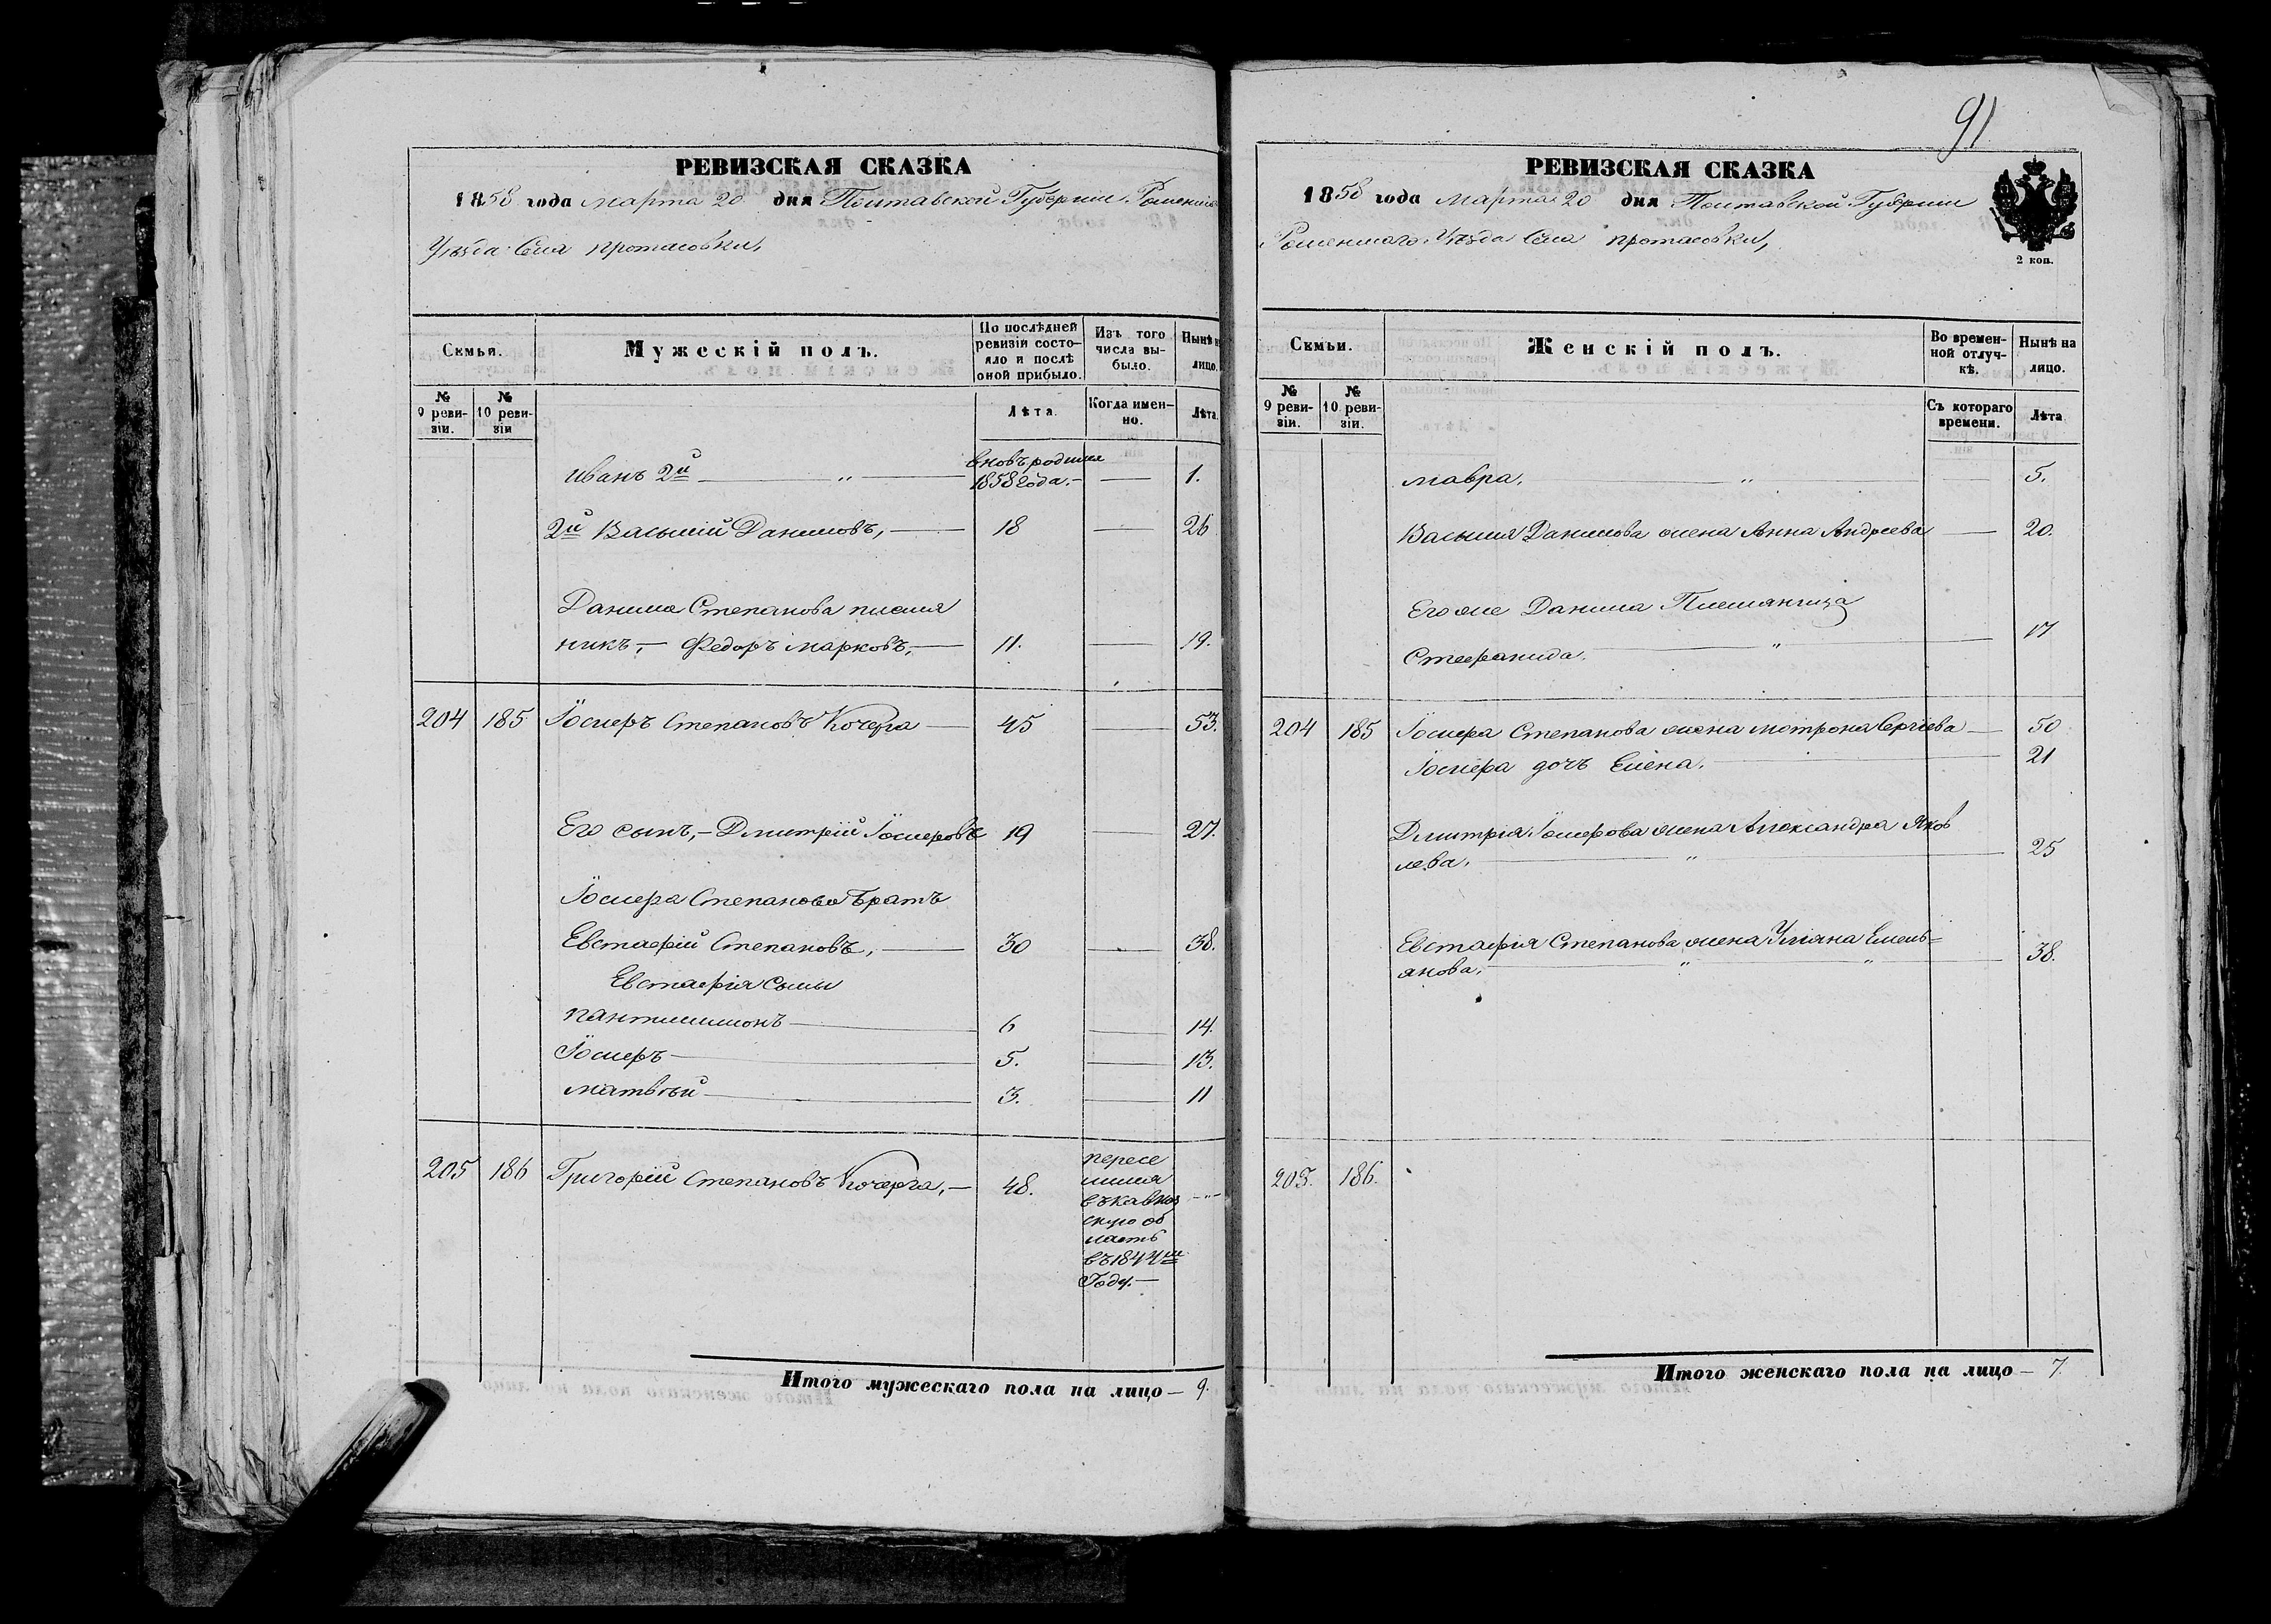 РЕВИЗСКАЯ СКАЗКА
1858 года Марта 20 дня Полтавской Губернiи Роменскаго
Уѣзда Села Протасовки,
Семьи.
Мужескiй полъ.
По послѣдней ревизiи состояло и послѣ оной прибыло.
Изъ того числа выбыло.
Нынѣ на лицо.
№ 9 ревизiи.
№ 10 ревизiи
Лѣта.
Когда именно.
Лѣта.
Иванъ 2й — „ — вновь родился 1858 года. — — 1.
2й Василiй Даниловъ, — 18 — 26
Данила Степанова племян
никъ, — Федоръ Марковъ, — 11. — 19.
204 185 Iосифъ Степановъ Кочерга — 45 — 53.
Его сынъ, — Дмитрiй Iосифовъ 19 — 27.
Iосифа Степанова Братъ
Евстафiй Степановъ, — 30 — 38.
Евстафiя Сыны
Пантилимонъ — 6 — 14.
Iосифъ — 5. — 13.
Матвѣй — 3. — 11
205 186 Григорiй Степановъ Кочерга, — 48. пересе
лился
въ Кавказ
скую об
ласть
въ 1844м
Году. —
Итого мужескаго пола на лицо — 9.
91
РЕВИЗСКАЯ СКАЗКА
1858 года Марта 20 дня Полтавской Губернiи
Роменскаго Уѣзда Села Протасовки,
2 коп.
Семьи.
Женскiй полъ.
Во временной отлучкѣ.
Нынѣ на лицо.
№ 9 ревизiи.
№ 10 ревизiи.
Съ котораго времени.
Лѣта
Мавра. — „ — 5.
Василия Данилова жена Анна Андреева — 20.
Его же Данила Племянница
Стефанида. — „ — 17
204 185 Iосифа Степанова жена Мотрона Сергiева — 50
Iосифа дочь Елена. — 21
Дмитрiя Iосифова жена Александра Яков
лева. — „ — 25
Евстафiя Степанова жена Улiяна Емель=
янова. — „ — „ — 38.
205. 186.
Итого женскаго пола на лицо — 7.